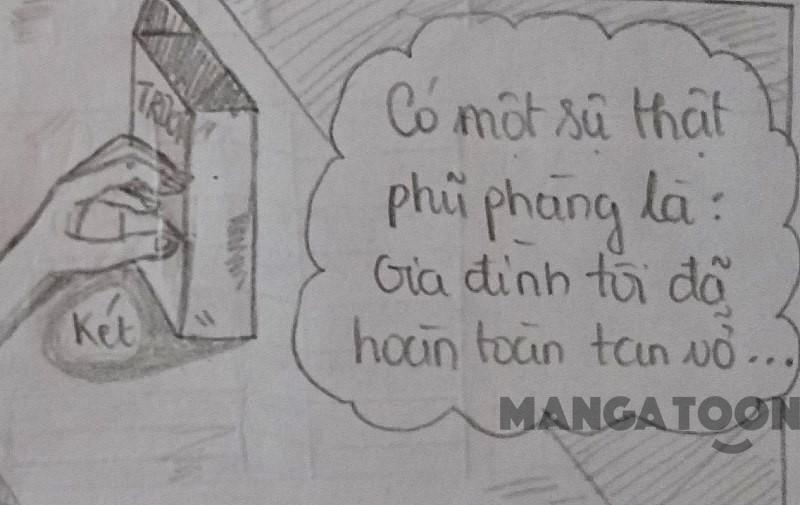 Có một sự thật
phũ phàng là:
Gia đình tôi đã
hoàn toàn tan vỡ...
Két
MANGATOON